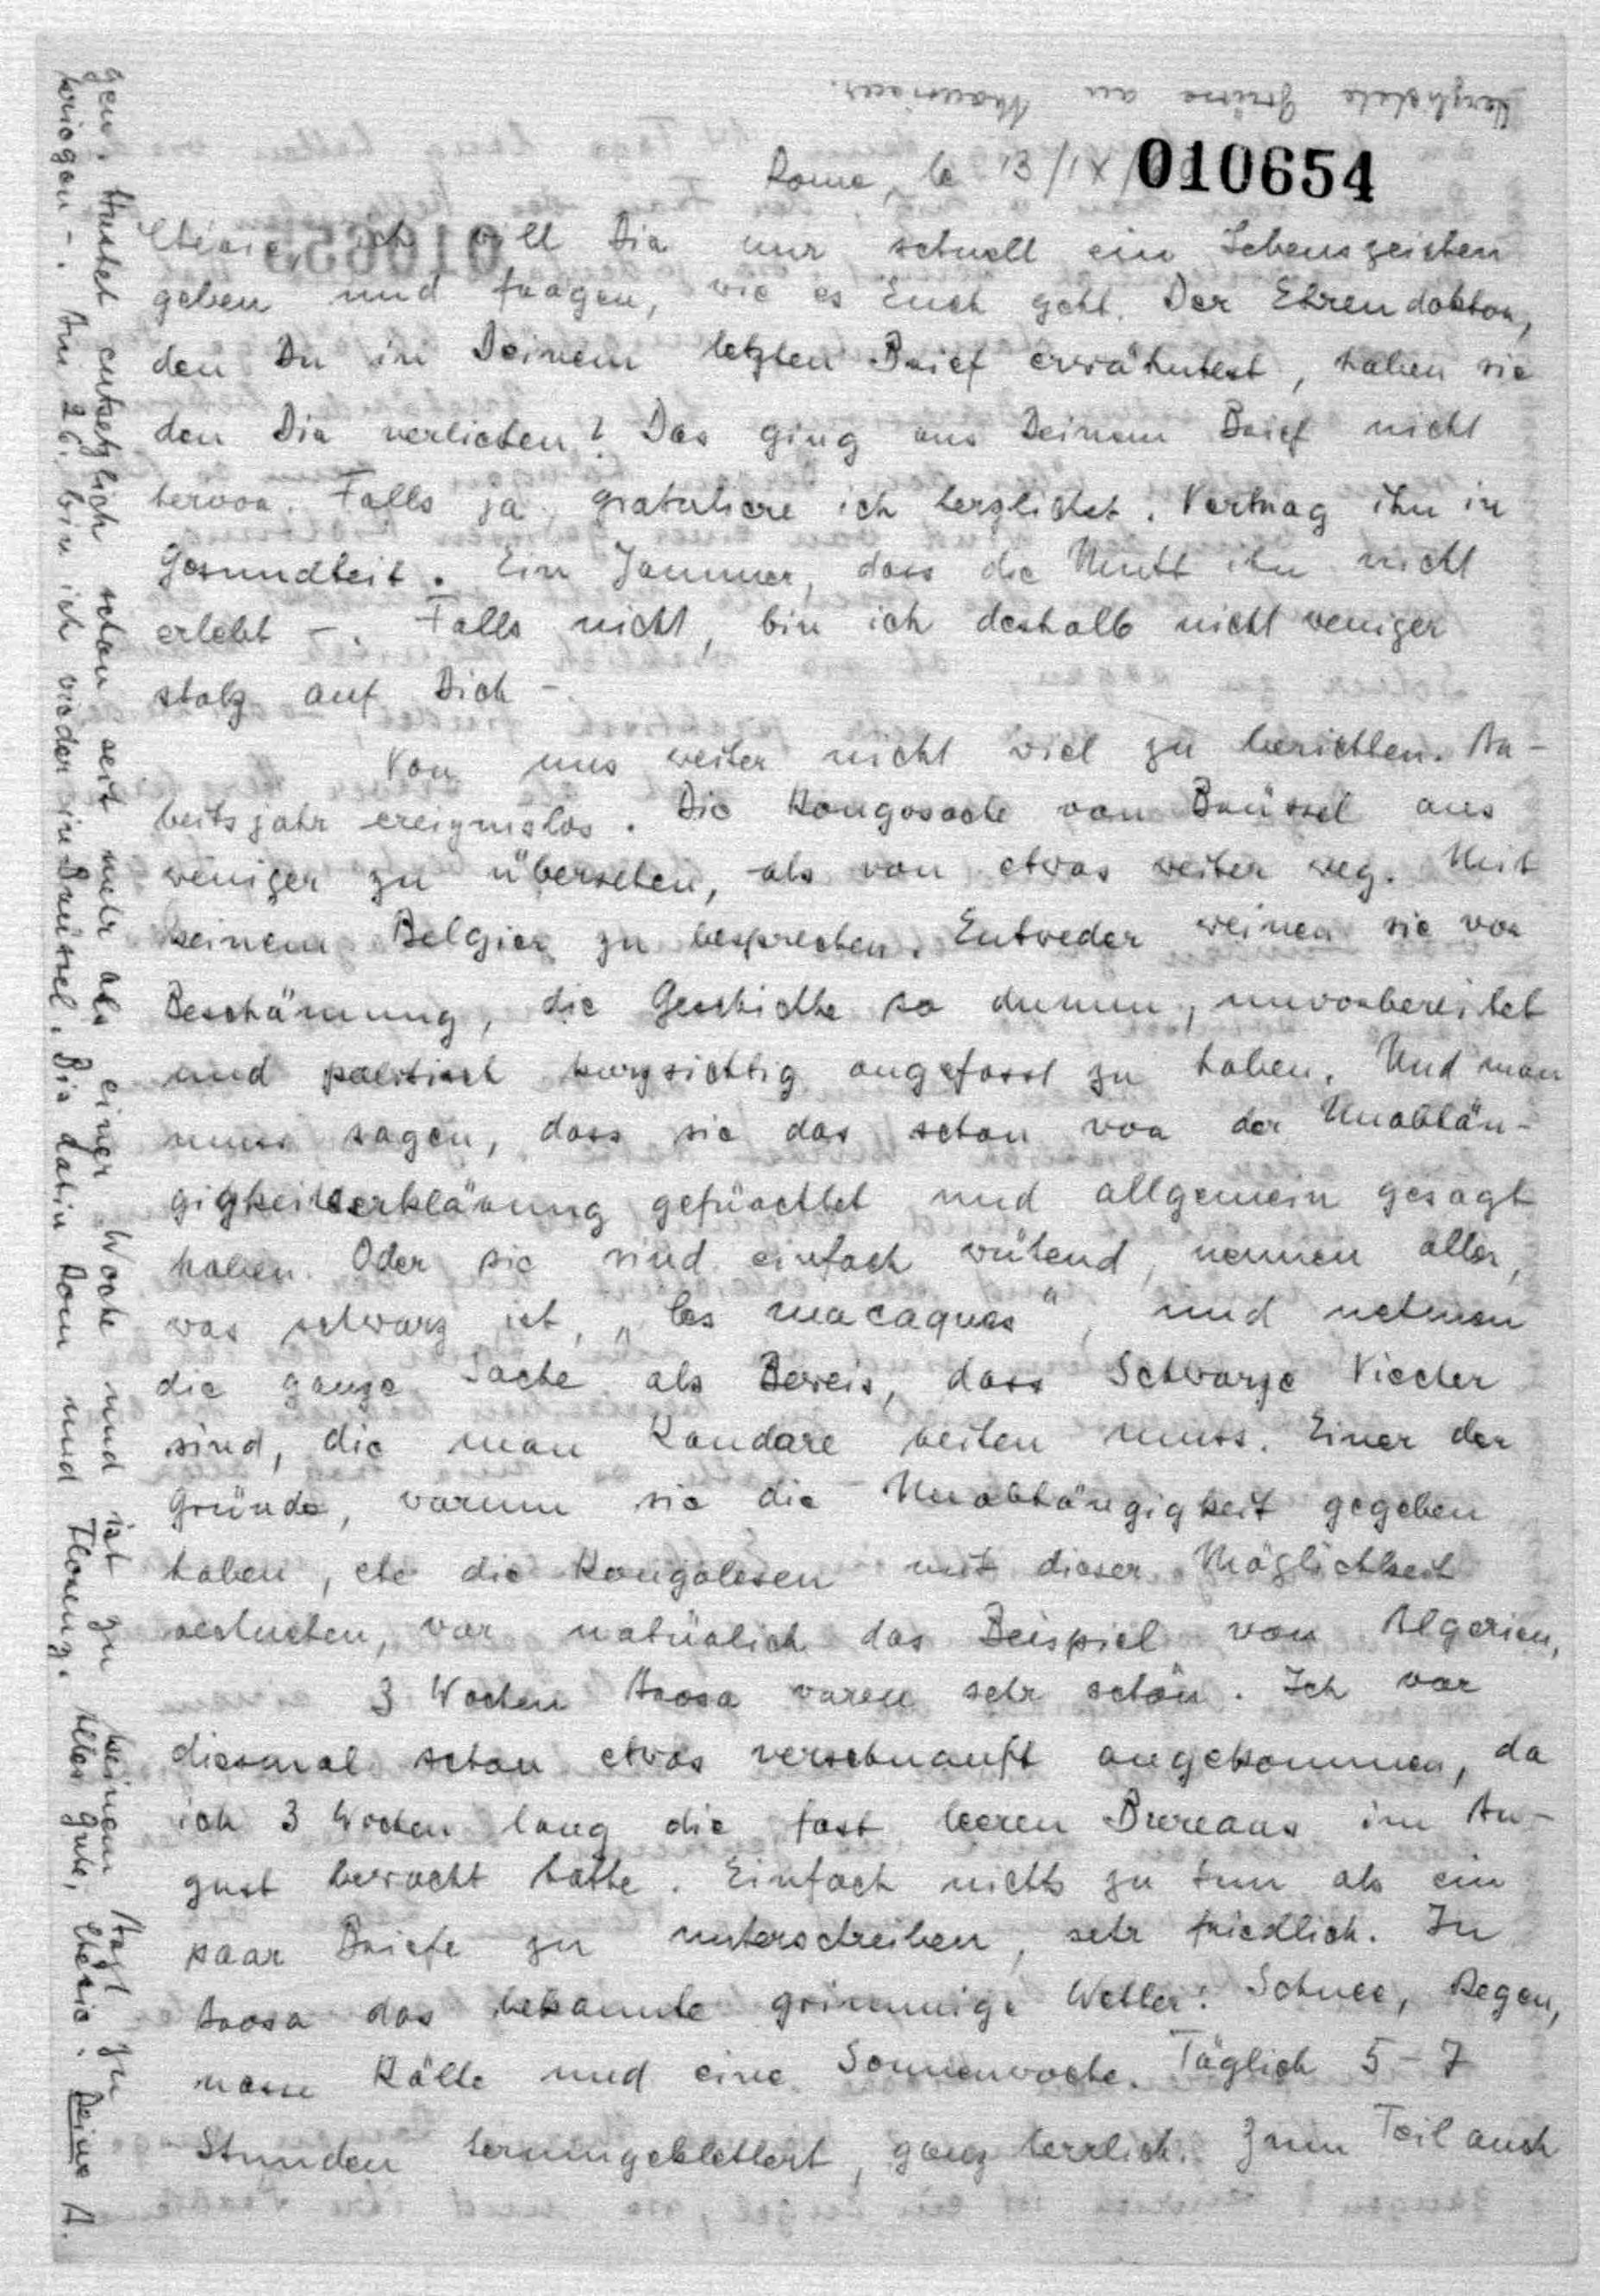 Herzlichste Grüsse an Monsieur.
Rome, le 13/IX/
010654
Chérie, ich will Dir nur schnell ein Lebenszeichen
geben und fragen, wie es Euch geht. Der Ehrendoktor,
den Du in Deinem letzten Brief erwähntest, haben sie
den Dir verliehen? Das ging aus Deinem Brief nicht
hervor. Falls ja, gratuliere ich herzlichst. Vertrag ihn in
Gesundheit. Ein Jammer, dass die Mutt ihn nicht
erlebt –. Falls nicht, bin ich deshalb nicht weniger
stolz auf Dich –.
Von uns weiter nicht viel zu berichten. Ar-
beitsjahr ereignislos. Die Kongosache von Brüssel aus
weniger zu übersehen, als von etwas weiter weg. Mit
keinem Belgier zu besprechen. Entweder weinen sie vor
Beschämung, die Geschichte so dumm, unvorbereitet
und politisch kurzsichtig angefasst zu haben. Und man
muss sagen, dass sie das schon vor der Unabhän-
gigkeitserklärung gefürchtet und allgemein gesagt
haben. Oder sie sind einfach wütend, nennen alles,
was schwarz ist, „les macaques", und nehmen
die ganze Sache als Beweis, dass Schwarze Viecher
sind, die man Kandare reiten muss. Einer der
Gründe, warum sie die Unabhängigkeit gegeben
haben, ehe die Kongolesen mit dieser Möglichkeit
rechneten, war natürlich das Beispiel von Algerien.
3 Wochen Arosa waren sehr schön. Ich war
diesmal schon etwas verschnauft angekommen, da
ich 3 Wochen lang die fast leeren Bureaus im Au-
gust bewacht hatte. Einfach nichts zu tun als ein
paar Briefe zu unterschreiben, sehr friedlich. In
Arosa das bekannte grimmige Wetter: Schnee, Regen,
nasse Kälte und eine Sonnenwoche. Täglich 5–7
Stunden herumgeklettert, ganz herrlich. Zum Teil auch
gen. Hustet entsetzlich schon seit mehr als einer Woche und ist zu keinem Arzt zu
kriegen –. Am 26. bin ich wieder in Brüssel. Bis dahin Rom und Florenz. Alles Gute, Chérie. Deine A.